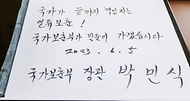 국가가 끝까지 책임지는
일류보훈!
국가보훈부가 만들어 가겠습니다
2023. 6. 5
국가보훈부 장관 박민식